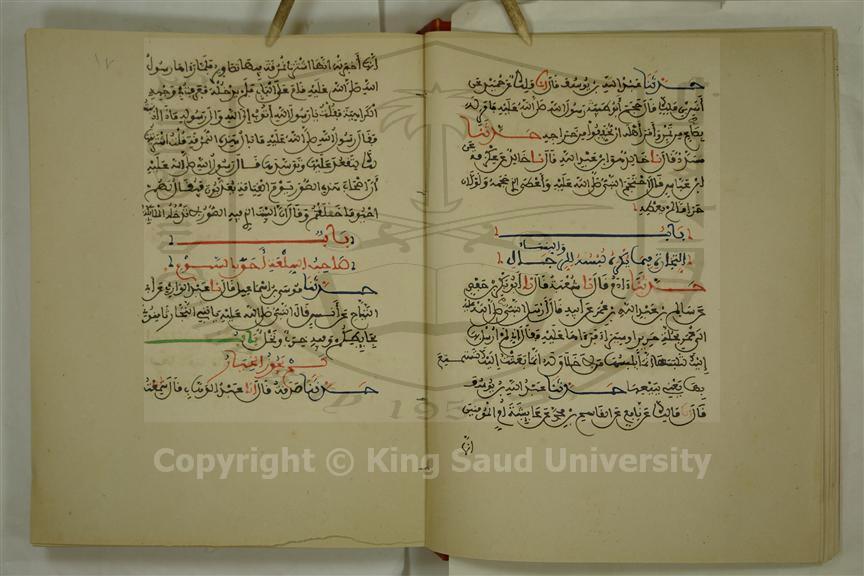 حدثنا عبد الله بن يوسف قال انا ملك عن حميد عن
أنس بن ملك قال حجم أبو طيبة رسول الله صلى الله عليه فأمر له
بصاع من تمر وأمر أهله أن يخففوا من خراجه حدثنا
مسدد قال نا خالد هو ابن عبد الله قال نا خالد عن عكرمة عن
ابن عباس قال احتجم النبي صلى الله عليه وأعطى الذي حجمه ولو كان
حراما لم يعطه
باب
التجارة فيما يكره لبسه للرجال والنساء
حدثنا ءادم قال نا شعبة قال نا أبو بكر بن حفص
عن سالم بن عبد الله بن عمر عن أبيه قال أرسل النبي صلى الله عليه
إلى عمر بحلة حرير أو سيراء فرءاها عليه فقال إني لم أرسل بها
إليك لتلبسها إنما يلبسها من لا خلاق له إنما بعثت إليك لتستمتع
بها يعني تبيعها حدثنا عبد الله بن يوسف
قال انا ملك عن نافع عن القاسم بن محمد عن عائشة أم المؤمنين
أنها أخبرته أنها اشترت نمرقة فيها تصاوير فلما رءاها رسول
الله صلى الله عليه قام على الباب فلم يدخله فعرفت في وجهه
الكراهية فقلت يا رسول الله أتوب إلى الله وإلى رسوله ماذا أذنبت
فقال رسول الله صلى الله عليه ما بال هذه النمرقة قلت اشتريتها
لك لتقعد عليها وتوسدها فقال رسول الله صلى الله عليه
إن أصحاب هذه الصور يوم القيامة يعذبون فيقال لهم
أحيوا ما خلقتم وقال إن البيت الذي فيه الصور لا تدخله الملائكة
باب
صاحب السلعة أحق بالسوم
حدثنا موسى بن إسماعيل قال نا عبد الوارث عن أبي
التياح عن أنس قال قال النبي صلى الله عليه يا بني النجار ثامنوني
بحائطكم وفيه خرب ونخل باب
كم يجوز الخيار
حدثنا صدقة قال أنا عبد الوهاب قال سمعت
Copyright © King Saud University
1957